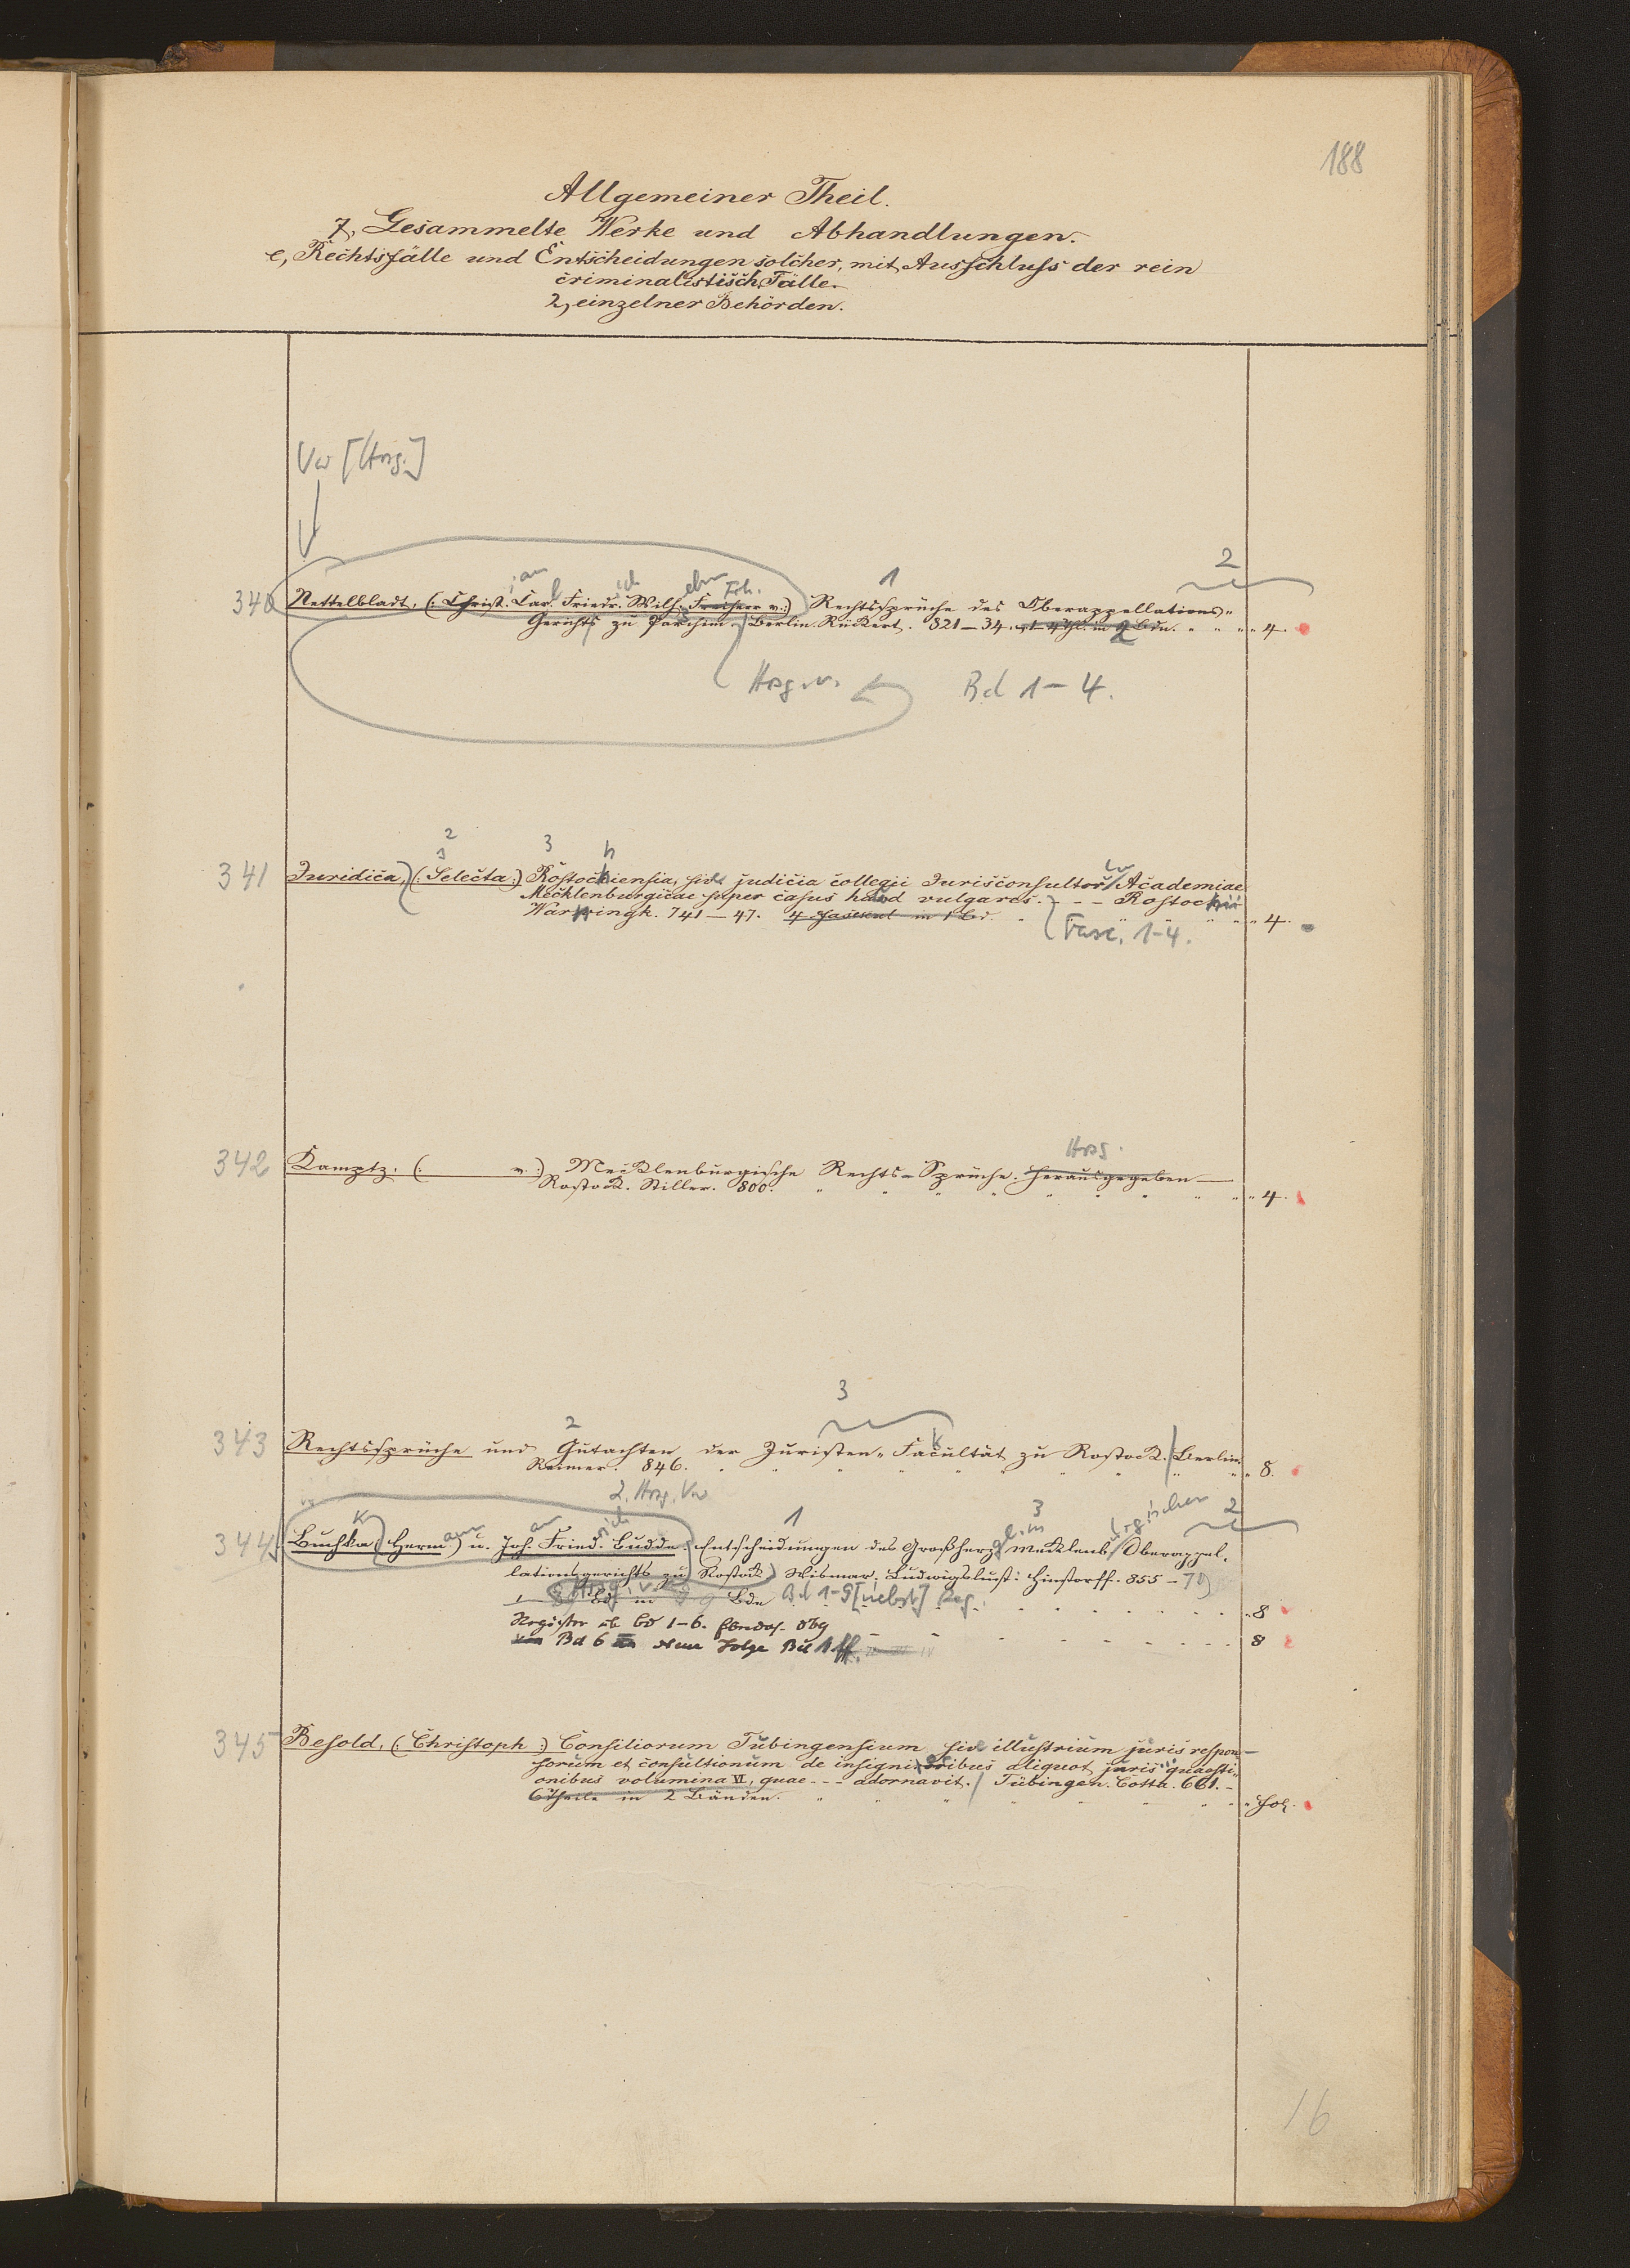 188
Allgemeiner Theil.
7, Gesammelte Werke und Abhandlungen.
e, Rechtsfälle und Entscheidungen solcher, mit Ausschluss der rein
criminalistisch. Fälle.
2, einzelner Behörden.
Vw [Hrsg.]
1 2
340 Nettelbladt, (: Christ. Carl Friedr. Wilh. Freiherr v.:) Rechtssprüche des Oberappellations-
Gerichts zu Parchim. Berlin. Rückert. 821–34. 4.
Hrsg. v. Bd 1–4.
2 3 h
341 Juridica, (: Selecta:) Rostochiensia, sive judicia collegii Jurisconsultor. Academiae
Mecklenburgicae super casus haud vulgares. - - - Rostochii
Warningk. 741–47. 4 Fascicul in 1 Bd. 4.
Fasc. 1–4.
Hrsg.
342 Kamptz. (: v.:) Mecklenburgische Rechts-Sprüche. herausgegeben
Rostock. Stiller. 800. 4.
2 3
343 Rechtssprüche und Gutachten der Juristen-Facultät zu Rostock. Berlin.
Reimer. 846. 8.
2. Hrsg. Vw
1 3 2
344 Buchka, Herm. u. Joh. Fried. Budde. Entscheidungen des Großherz. Mecklenb. Oberappel-
lationsgerichts zu Rostock. Wismar. Ludwigslust: Hinstorff. 855–79
Bd 1–9 [nebst] Reg. 8
Register üb. Bd 1–6. Ebendas. 869
Bd 6 Neue Folge Bd 1 ff. 8
345 Besold, (: Christoph:) Consiliorum Tubingensium sive illustrium juris respon-
sorum et consultionum de insignioribus aliquot juris quaesti-
onibus volumina VI, quae - - - adornavit. Tübingen. Cotta. 661.
6 Theile in 2 Bänden. Fol.
16